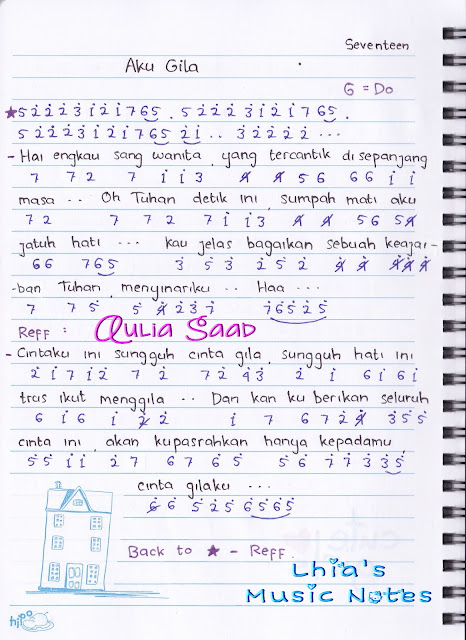 Seventeen
Aku Gila
G = Do
★5 2̇ 2̇ 2̇ 3̇ 1̇ 2̇ 1̇ 7 6 5 . 5 2̇ 2̇ 2̇ 3̇ 1̇ 2̇ 1̇ 7 6 5 .
5 2̇ 2̇ 2̇ 3̇ 1̇ 2̇ 1̇ 7 6 5 2̇ 1̇ . . 3̇ 2̇ 2̇ 2̇ 2̇ ...
- Hai engkau sang wanita, yang tercantik di sepanjang
7 7 2 7 1̇ 1̇ 3 4̸ 4̸ 5 6 6 6 1̇ 1̇
masa .. Oh Tuhan detik ini, sumpah mati aku
7 2 7 7 2 7 1̇ 1̇ 3 4̸ 4̸ 5 6 5 4̸
jatuh hati ... kau jelas bagaikan sebuah keajai-
6 6 7 6 5 3̇ 5̇ 3̇ 2̇ 5̇ 2̇ 4̸ 4̸ 4̸ 4̸ 4̸
-ban Tuhan, menyinariku .. Haa ...
7 7 5̇ 5̇ 4̸ 2̇ 3̇ 7 7̇ 6̇ 5̇ 2̇ 5̇
Reff :
Aulia Saad
- Cintaku ini sungguh cinta gila, sungguh hati ini
2̇ 1̇ 7 1̇ 2̇ 7 2̇ 7 2̇ 4̇ 3̇ 2̇ 1̇ 6 1̇ 6 1̇
trus ikut menggila .. Dan kan ku berikan seluruh
6 1̇ 6 1̇ 2̸ 2̇ 1̇ 7 6 7 2̇ 4̸ 3̇ 5̇ 5̇
cinta ini, akan kupasrahkan hanya kepadamu,
5̇ 5̇ 1̇ 1̇ 2̇ 7 6 7 6̇ 5̇ 5̇ 6̇ 7̇ 7̇ 3̇ 3̇ 5̇
cinta gilaku ...
6̸ 6̇ 5̇ 2̇ 5̇ 6̇ 5̇ 6̇ 5̇
Back to ★ - Reff.
Lhia's
Music Notes
hipo